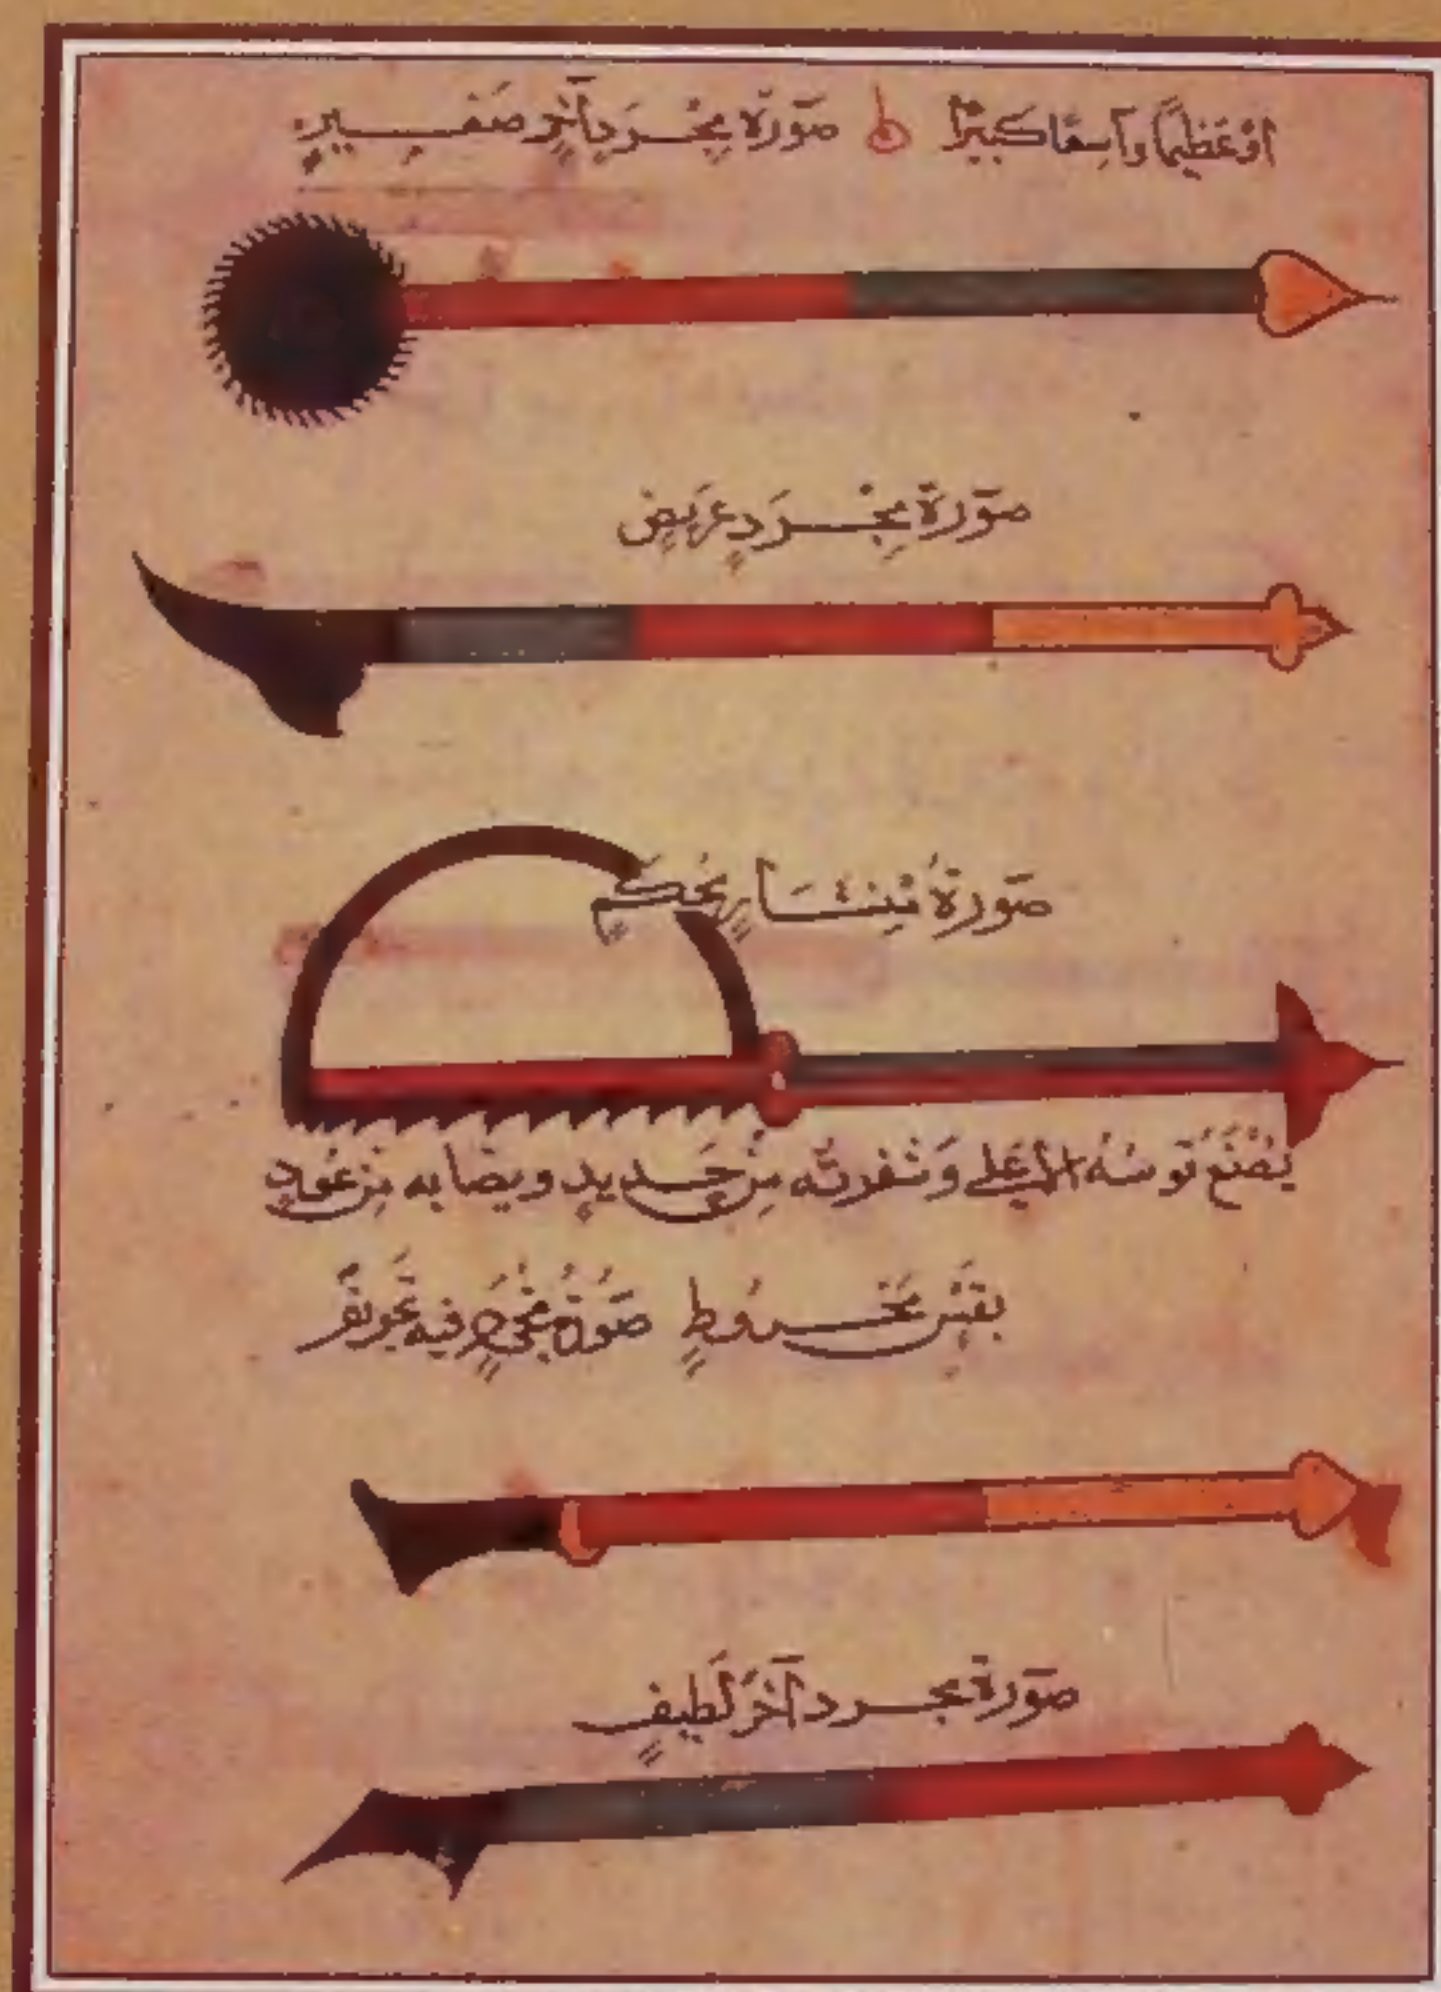 اَوْ عَظِيمًا وَاسِعًا كَبِيرًا صَوَرَة مِجْرَدٍ آخَرِ صَغِيرٍ
صَورَة مِجْرَدٍ عَرِيضٍ
صَورَةُ مِنِشَارٍ مُحْكَمٍ
يُصْنَعُ قَوسُهُ الأعَلى وَشفرتُه مِن حَديدٍ ونصابه مِن عُودٍ
بقسٍ مَخْرُوطٍ صُورَةُ مِجْرَدٍ فيه تَجويفٌ
صَورَة مجرد آخَرَ لَطِيفٍ